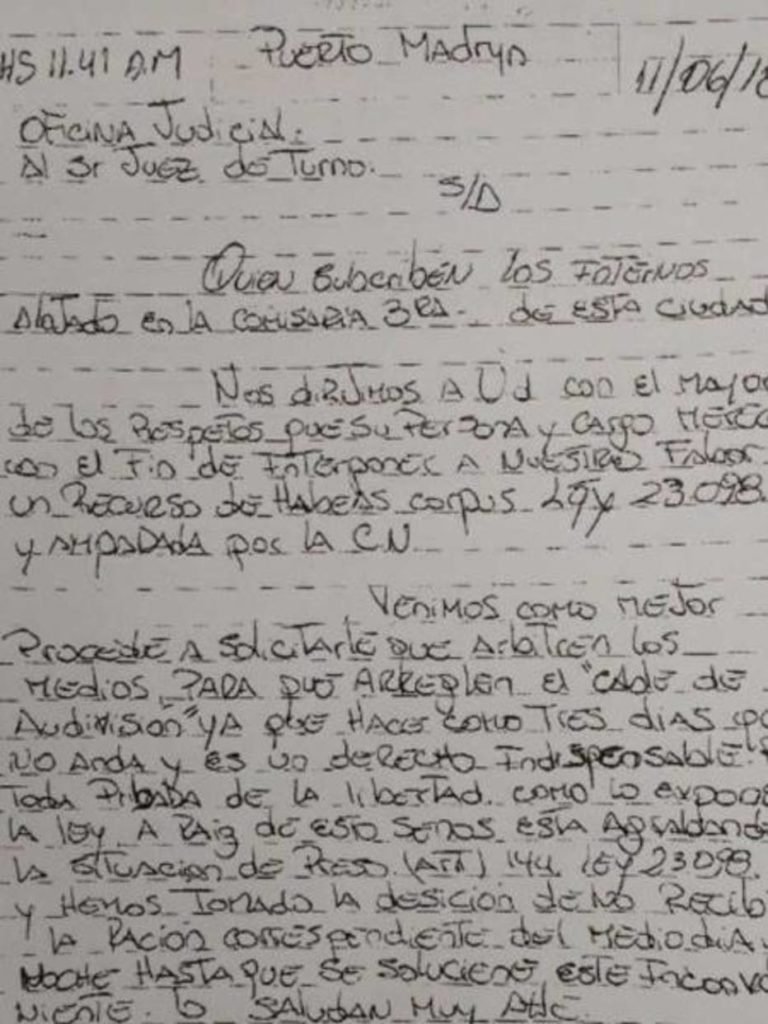 HS 11.41 A.M Puerto Madryn 11/06/18
Oficina Judicial:
Al Sr Juez de Turno.
S/D
Quien Subscriben los Internos
Alojado en la comisaria 3RA. de esta ciudad
Nos dirijimos a Ud con el mayo
de los Respetos que su Persona y cargo merec
con el Fin de Interponer a Nuestro Fabor
un Recurso de Habeas corpus Ley 23.098
y amparada por la C.N.
Venimos como mejor
Procede a solicitarle que arbitren los
medios, para que arreglen el "Cable de
Audivision" ya que hace como tres dias q
no anda y es un derecho Indispensable.
Toda Pribada de la libertad. como lo expon
la ley. A Raiz de esto senos esta agraband
la situacion de Preso. (Art) 144 ley 23098.
y Hemos Tomado la desicion de No Recib
la Racion correspondiente del medio dia y
Noche hasta que se solucione este Inconv
niente. lo saludan muy Atte.